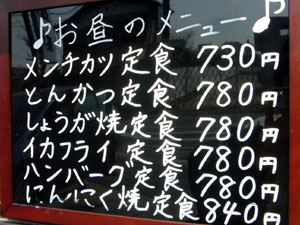 ♪お昼のメニュー♪
メンチカツ定食 730円
とんかつ定食 780円
しょうが焼定食 780円
イカフライ定食 780円
ハンバーグ定食 780円
にんにく焼定食 840円